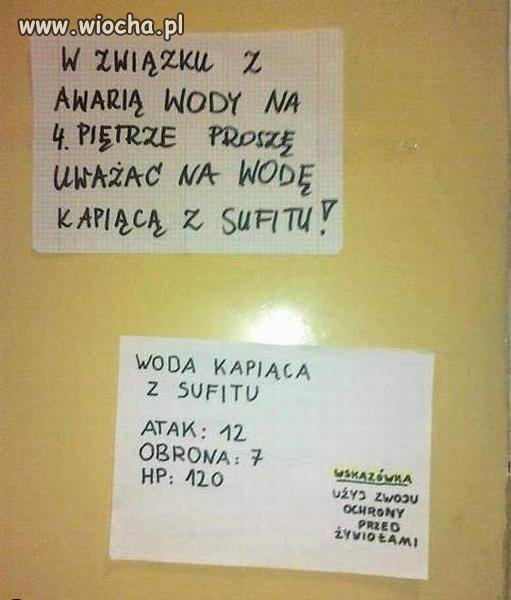 www.wiocha.pl
W ZWIĄZKU Z
AWARIĄ WODY NA
4. PIĘTRZE PROSZĘ
UWAŻAĆ NA WODĘ
KAPIĄCĄ Z SUFITU!
WODA KAPIĄCA
Z SUFITU
ATAK: 12
OBRONA: 7
HP: 120
WSKAZÓWKA
UŻYJ ZWOJU
OCHRONY
PRZED
ŻYWIOŁAMI